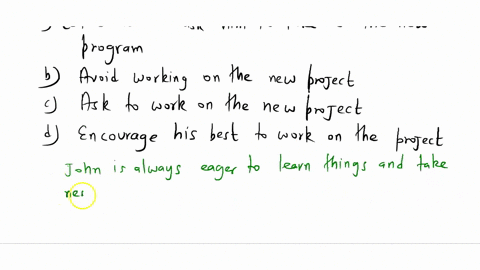 program
b) Avoid working on the new project
c) Ask to work on the new project
d) Encourage his best to work on the project
John is always eager to learn things and take